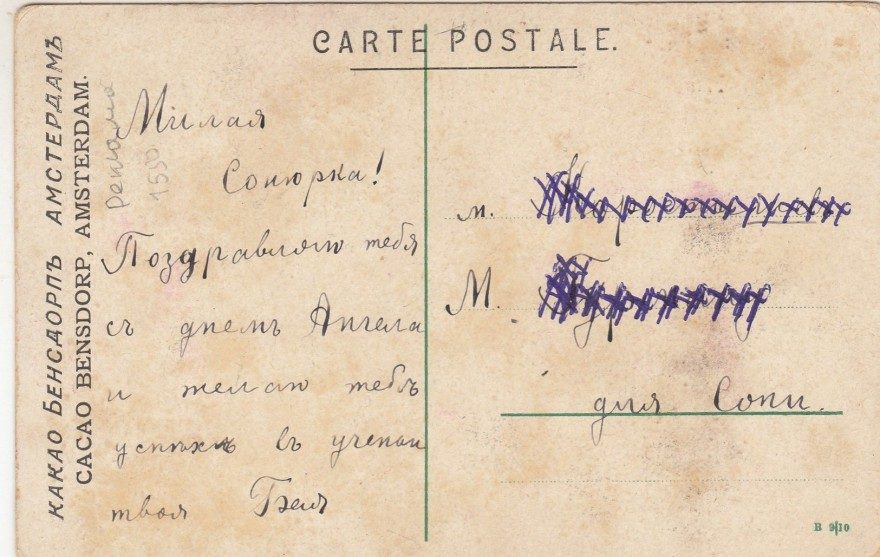 CARTE POSTALE.
КАКАО БЕНСДОРПЪ АМСТЕРДАМЪ
CACAO BENSDORP, AMSTERDAM.
Реклама
1550
Милая
Сонюрка!
Поздравляю тебя
съ днемъ Ангела
и желаю тебѣ
успѣховъ въ ученіи
твоя Беля
м.
М.
для Сони.
B 9/10